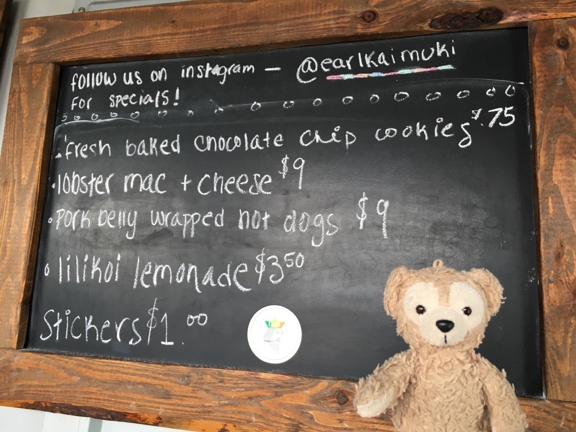 follow us on instagram - @earlkaimuki
for specials!
.fresh baked chocolate chip cookies $.75
.lobster mac + cheese $9
.pork belly wrapped hot dogs $9
.lilikoi lemonade $3.50
Stickers $1.00